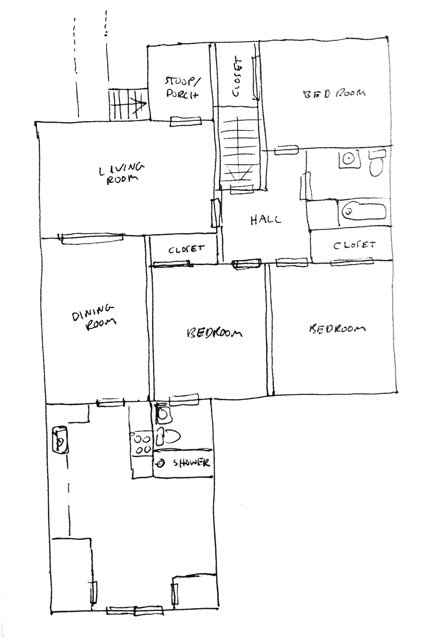 STOOP/
PORCH
CLOSET
BED ROOM
LIVING
ROOM
HALL
CLOSET
CLOSET
DINING
ROOM
BEDROOM
BEDROOM
SHOWER